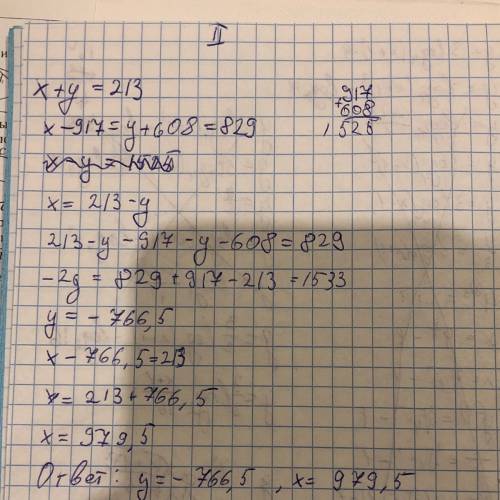 II
x+y=213
917
+608
1526
x-917=y+608=829
x-y=1525
x= 213-y
213-y-917-y-608=829
-2y = 829+917-213 =1533
y = - 766,5
x- 766,5=213
x= 213+766,5
x= 979,5
Ответ: y=- 766,5 , x= 979,5